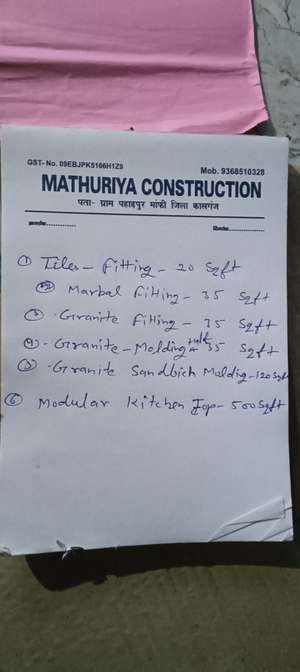 GST- No. 09EBJPK5166H1Z9
Mob. 9368510328
MATHURIYA CONSTRUCTION
पता- ग्राम पहाड़पुर मांफी जिला कासगंज
क्रमांक............. दिनांक.............
① Tiles - Fitting - 20 Sqft
② Marbal Fitting - 35 Sqft
③ Granite Fitting - 35 Sqft
④ Granite - Molding half 35 Sqft
⑤ Granite Sandbich Molding - 120 Sqft
⑥ Modular Kitchen Top - 500 Sqft